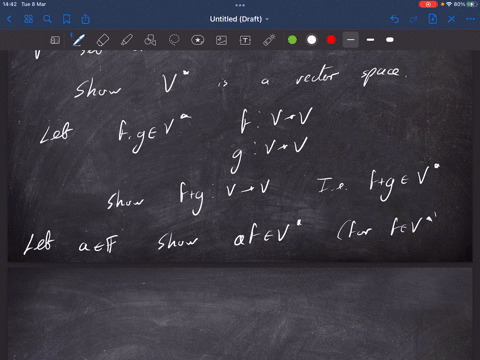 14:42 Tue 8 Mar
80%
Untitled (Draft)
Show V* is a vector space.
Let f, g ∈ V* f: V → V
g: V → V
show f+g: V → V I.e. f+g ∈ V*
Let a ∈ 𝔽 show af ∈ V* (for f ∈ V*)